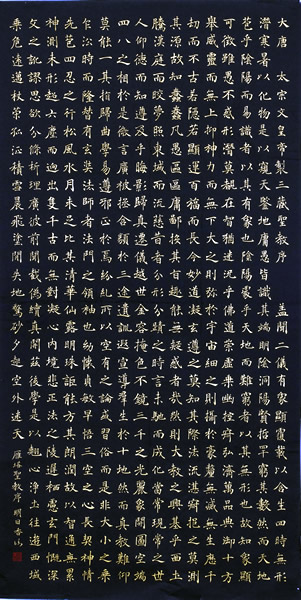 大唐 太宗文皇帝製三藏聖教序 蓋聞二儀有象顯覆載以含生四時無形
潛寒暑以化物是以窺天鑒地庸愚皆識其端明陰洞陽賢哲罕窮其數然而天地
苞乎陰陽而易識者以其有象也陰陽處乎天地而難窮者以其無形也故知象顯
可徵雖愚不惑形潛莫覩在智猶迷況乎佛道崇虛乘幽控寂弘濟萬品典御十方
舉威靈而無上抑神力而無下大之則彌於宇宙細之則攝於豪釐無滅無生歷千
劫而不古若隱若顯運百福而長今妙道凝玄遵之莫知其際法流湛寂挹之莫測
其源故知蠢蠢凡愚區區庸鄙投其旨趣能無疑惑者哉然則大教之興基乎西土
騰漢庭而皎夢照東域而流慈昔者分形分跡之時言未馳而成化當常現常之世
人仰德而知遵及乎晦影歸真遷儀越世金容掩色不鏡三千之光麗象開圖空端
四八之相於是微言廣被拯含類於三途遺訓遐宣導群生於十地然而真教難仰
莫能一其指歸曲學易遵邪正於焉紛糺所以空有之論或習俗而是非大小之乘
乍沿時而隆替有玄奘法師者法門之領袖也幼懷貞敏早悟三空之心長契神情
先苞四忍之行松風水月未足比其清華仙露明珠詎能方其朗潤故以智通無累
神測未形超六塵而迥出隻千古而無對凝心內境悲正法之陵遲栖慮玄門慨深
文之訛謬思欲分條析理廣彼前聞截偽續真開茲後學是以翹心淨土往遊西域
乘危遠邁杖策孤征積雪晨飛塗間失地驚砂夕起空外迷天 雁塔聖教序 明日香